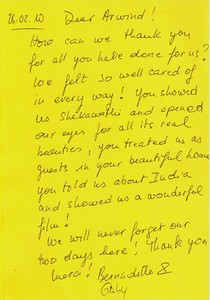 26.02.10 Dear Arwind!
How can we thank you
for all you have done for us?
We felt so well cared of
in every way! You showed
us Shekawathi and opened
our eyes for all its real
beauties, you treated us as
guests in your beautiful home
you told us about India
and showed us a wonderful
film!
We will never forget our
two days here! Thank you
merci! Bernadette &